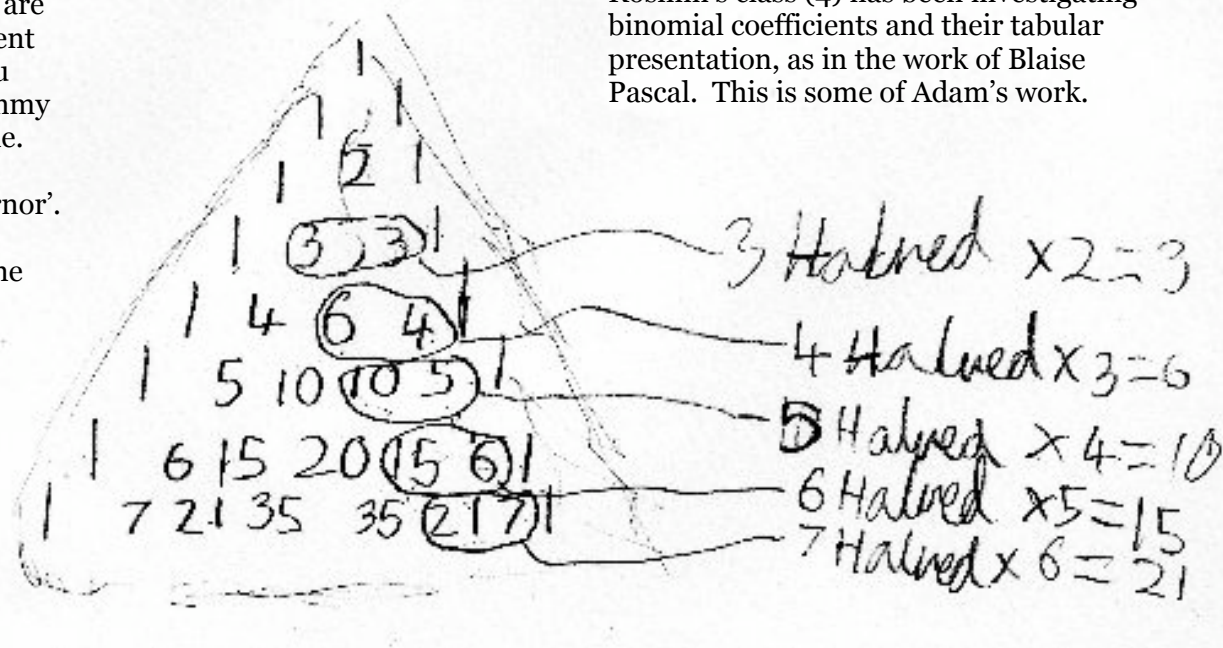 are
ent
u
nmy
e.
rnor'.
he
binomial coefficients and their tabular
presentation, as in the work of Blaise
Pascal. This is some of Adam's work.
1
1 1
1 2 1
1 3 3 1
1 4 6 4 1
1 5 10 10 5 1
1 6 15 20 15 6 1
1 7 21 35 35 21 7 1
3 Halved x2=3
4 Halved x3=6
5 Halved x4=10
6 Halved x5=15
7 Halved x6=21